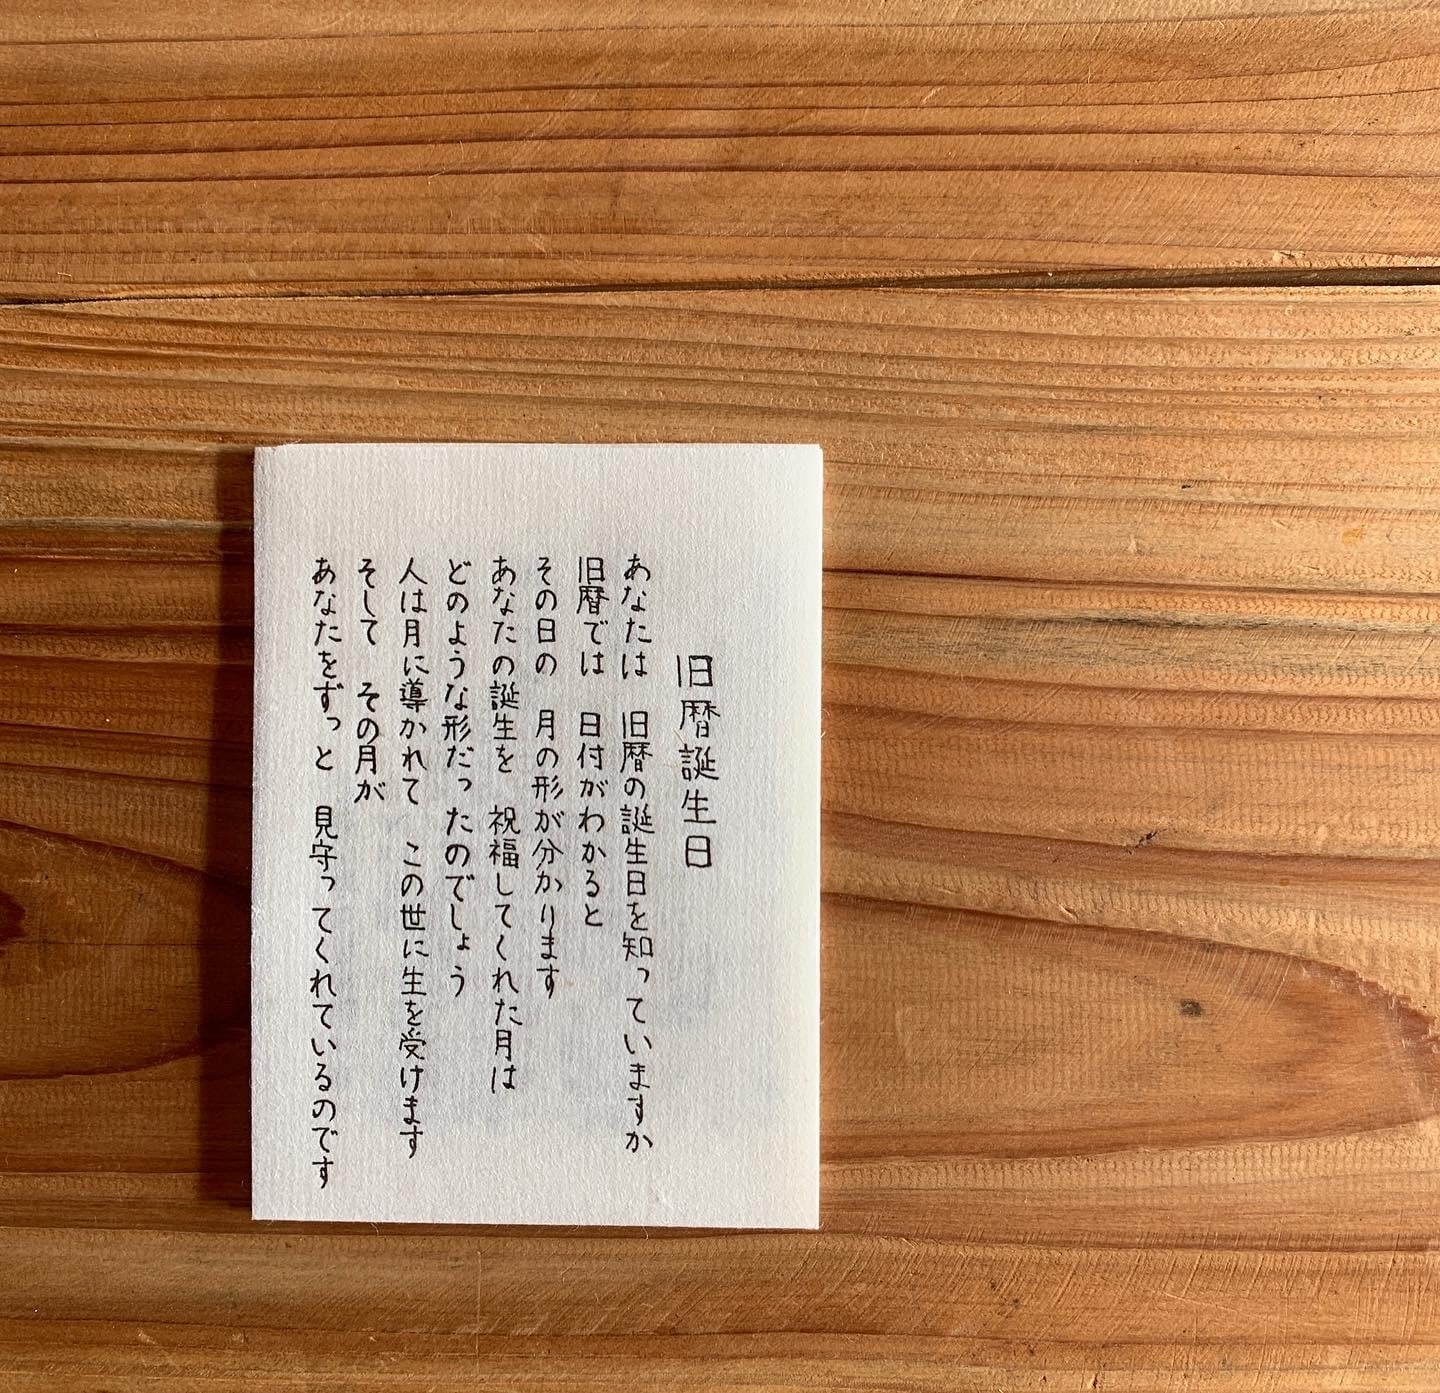 旧暦誕生日
あなたは　旧暦の誕生日を知っていますか
旧暦では　日付がわかると
その日の　月の形が分かります
あなたの誕生を　祝福してくれた月は
どのような形だったのでしょう
人は月に導かれて　この世に生を受けます
そして　その月が
あなたをずっと　見守ってくれているのです